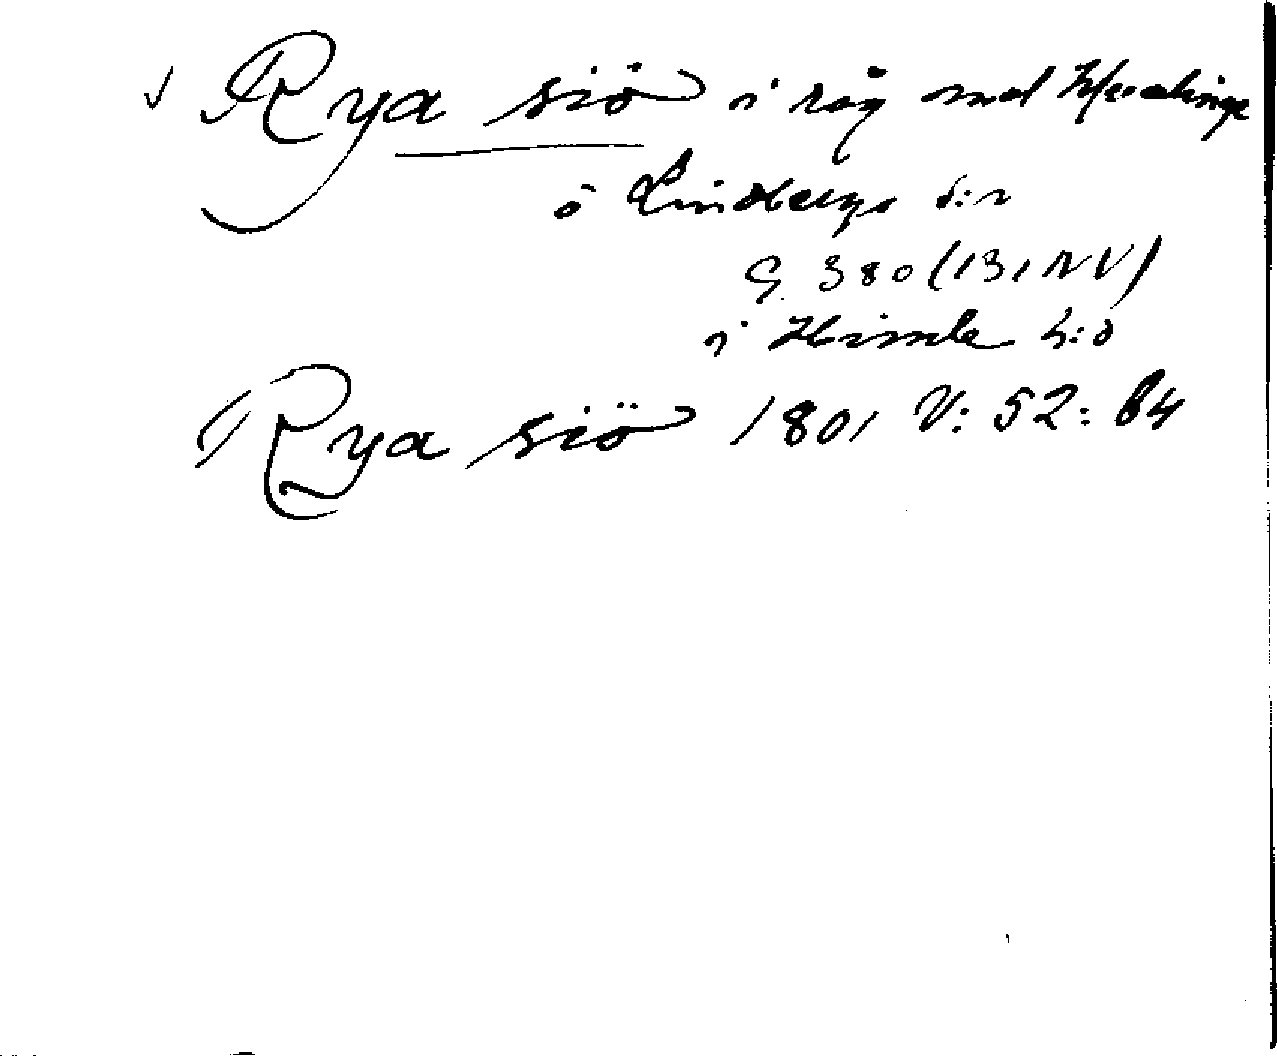 Rya siö i råg med Hvalinge
o Lindbergs s:n
G. 380 (131NV)
i Himle h:d
Rya siö 1801 V: 52: B4